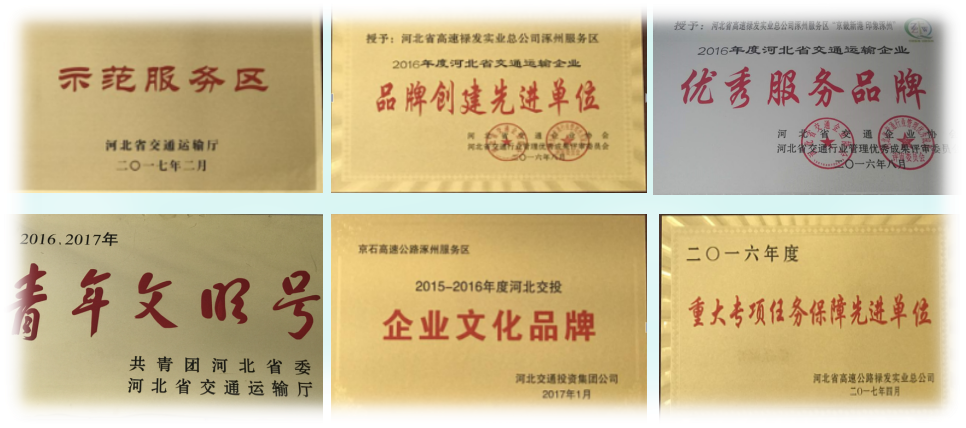 示范服务区
河北省交通运输厅
二〇一七年二月
授予：河北省高速禄发实业总公司涿州服务区
2016年度河北省交通运输企业
品牌创建先进单位
河北省交通企业协会
河北省交通行业管理优秀成果评审委员会
二〇一六年八月
授予：河北省高速禄发实业总公司涿州服务区
2016年度河北省交通运输企业
优秀服务品牌
河北省交通企业协
河北省交通行业管理优秀成果评审委员
二〇一六年八月
2016、2017年
青年文明号
共青团河北省委
河北省交通运输厅
京石高速公路涿州服务区
2015-2016年度河北交投
企业文化品牌
河北交通投资集团公司
2017年1月
二〇一六年度
重大专项任务保障先进单位
河北省高速公路禄发实业总公司
二〇一七年四月